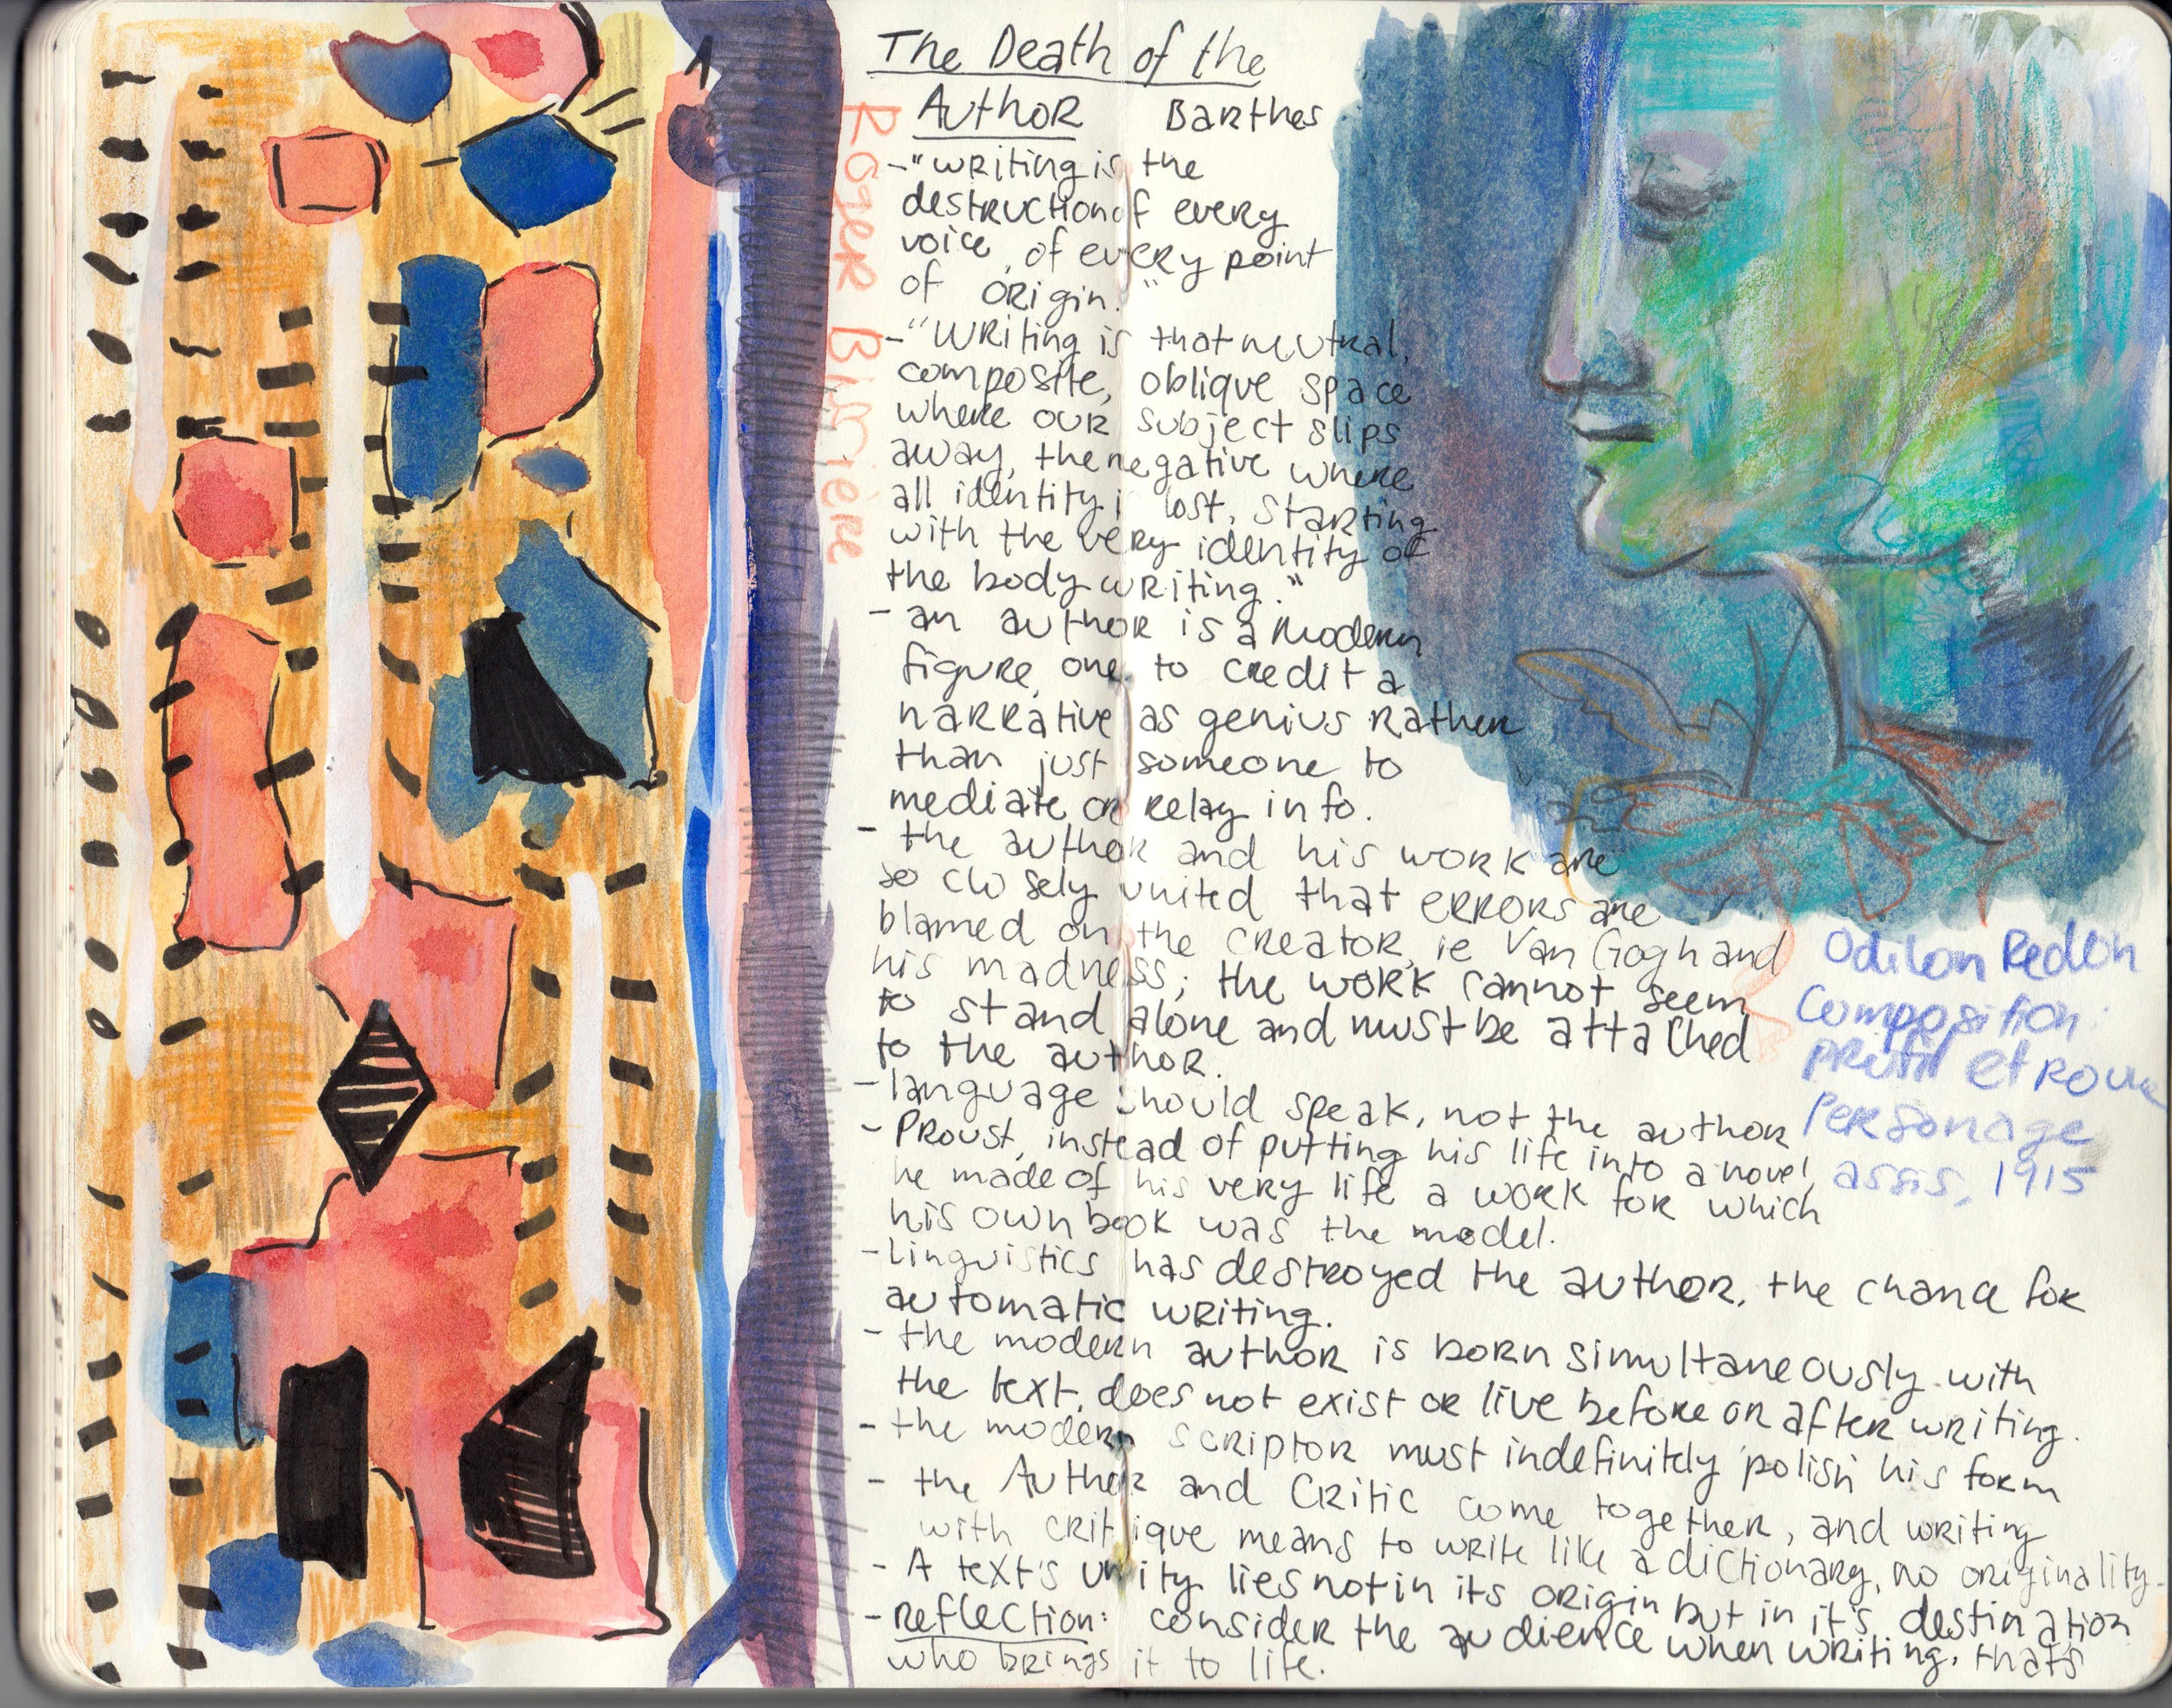 The Death of the
Author Barthes
-"Writing is the
destruction of every
voice, of every point
of origin."
-"Writing is that neutral,
composite, oblique space
where our subject slips
away, the negative where
all identity is lost, starting
with the very identity of
the body writing."
- an author is a modern
figure, one to credit a
narrative as genius rather
than just someone to
mediate or relay info.
- the author and his work are
so closely united that errors are
blamed on the creator, ie Van Gogh and
his madness; the work cannot seem
to stand alone and must be attached
to the author.
- language should speak, not the author
- Proust, instead of putting his life into a novel,
he made of his very life a work for which
his own book was the model.
- linguistics has destroyed the author, the chance for
automatic writing.
- the modern author is born simultaneously with
the text, does not exist or live before or after writing.
- the modern scriptor must indefinitely 'polish' his form
- the Author and Critic come together, and writing
with critique means to write like a dictionary, no originality.
- A text's unity lies not in its origin but in it's destination
- Reflection: consider the audience when writing, thats
who brings it to life.
Roger
Odilon Redon
Composition:
et
Personage
assis, 1915